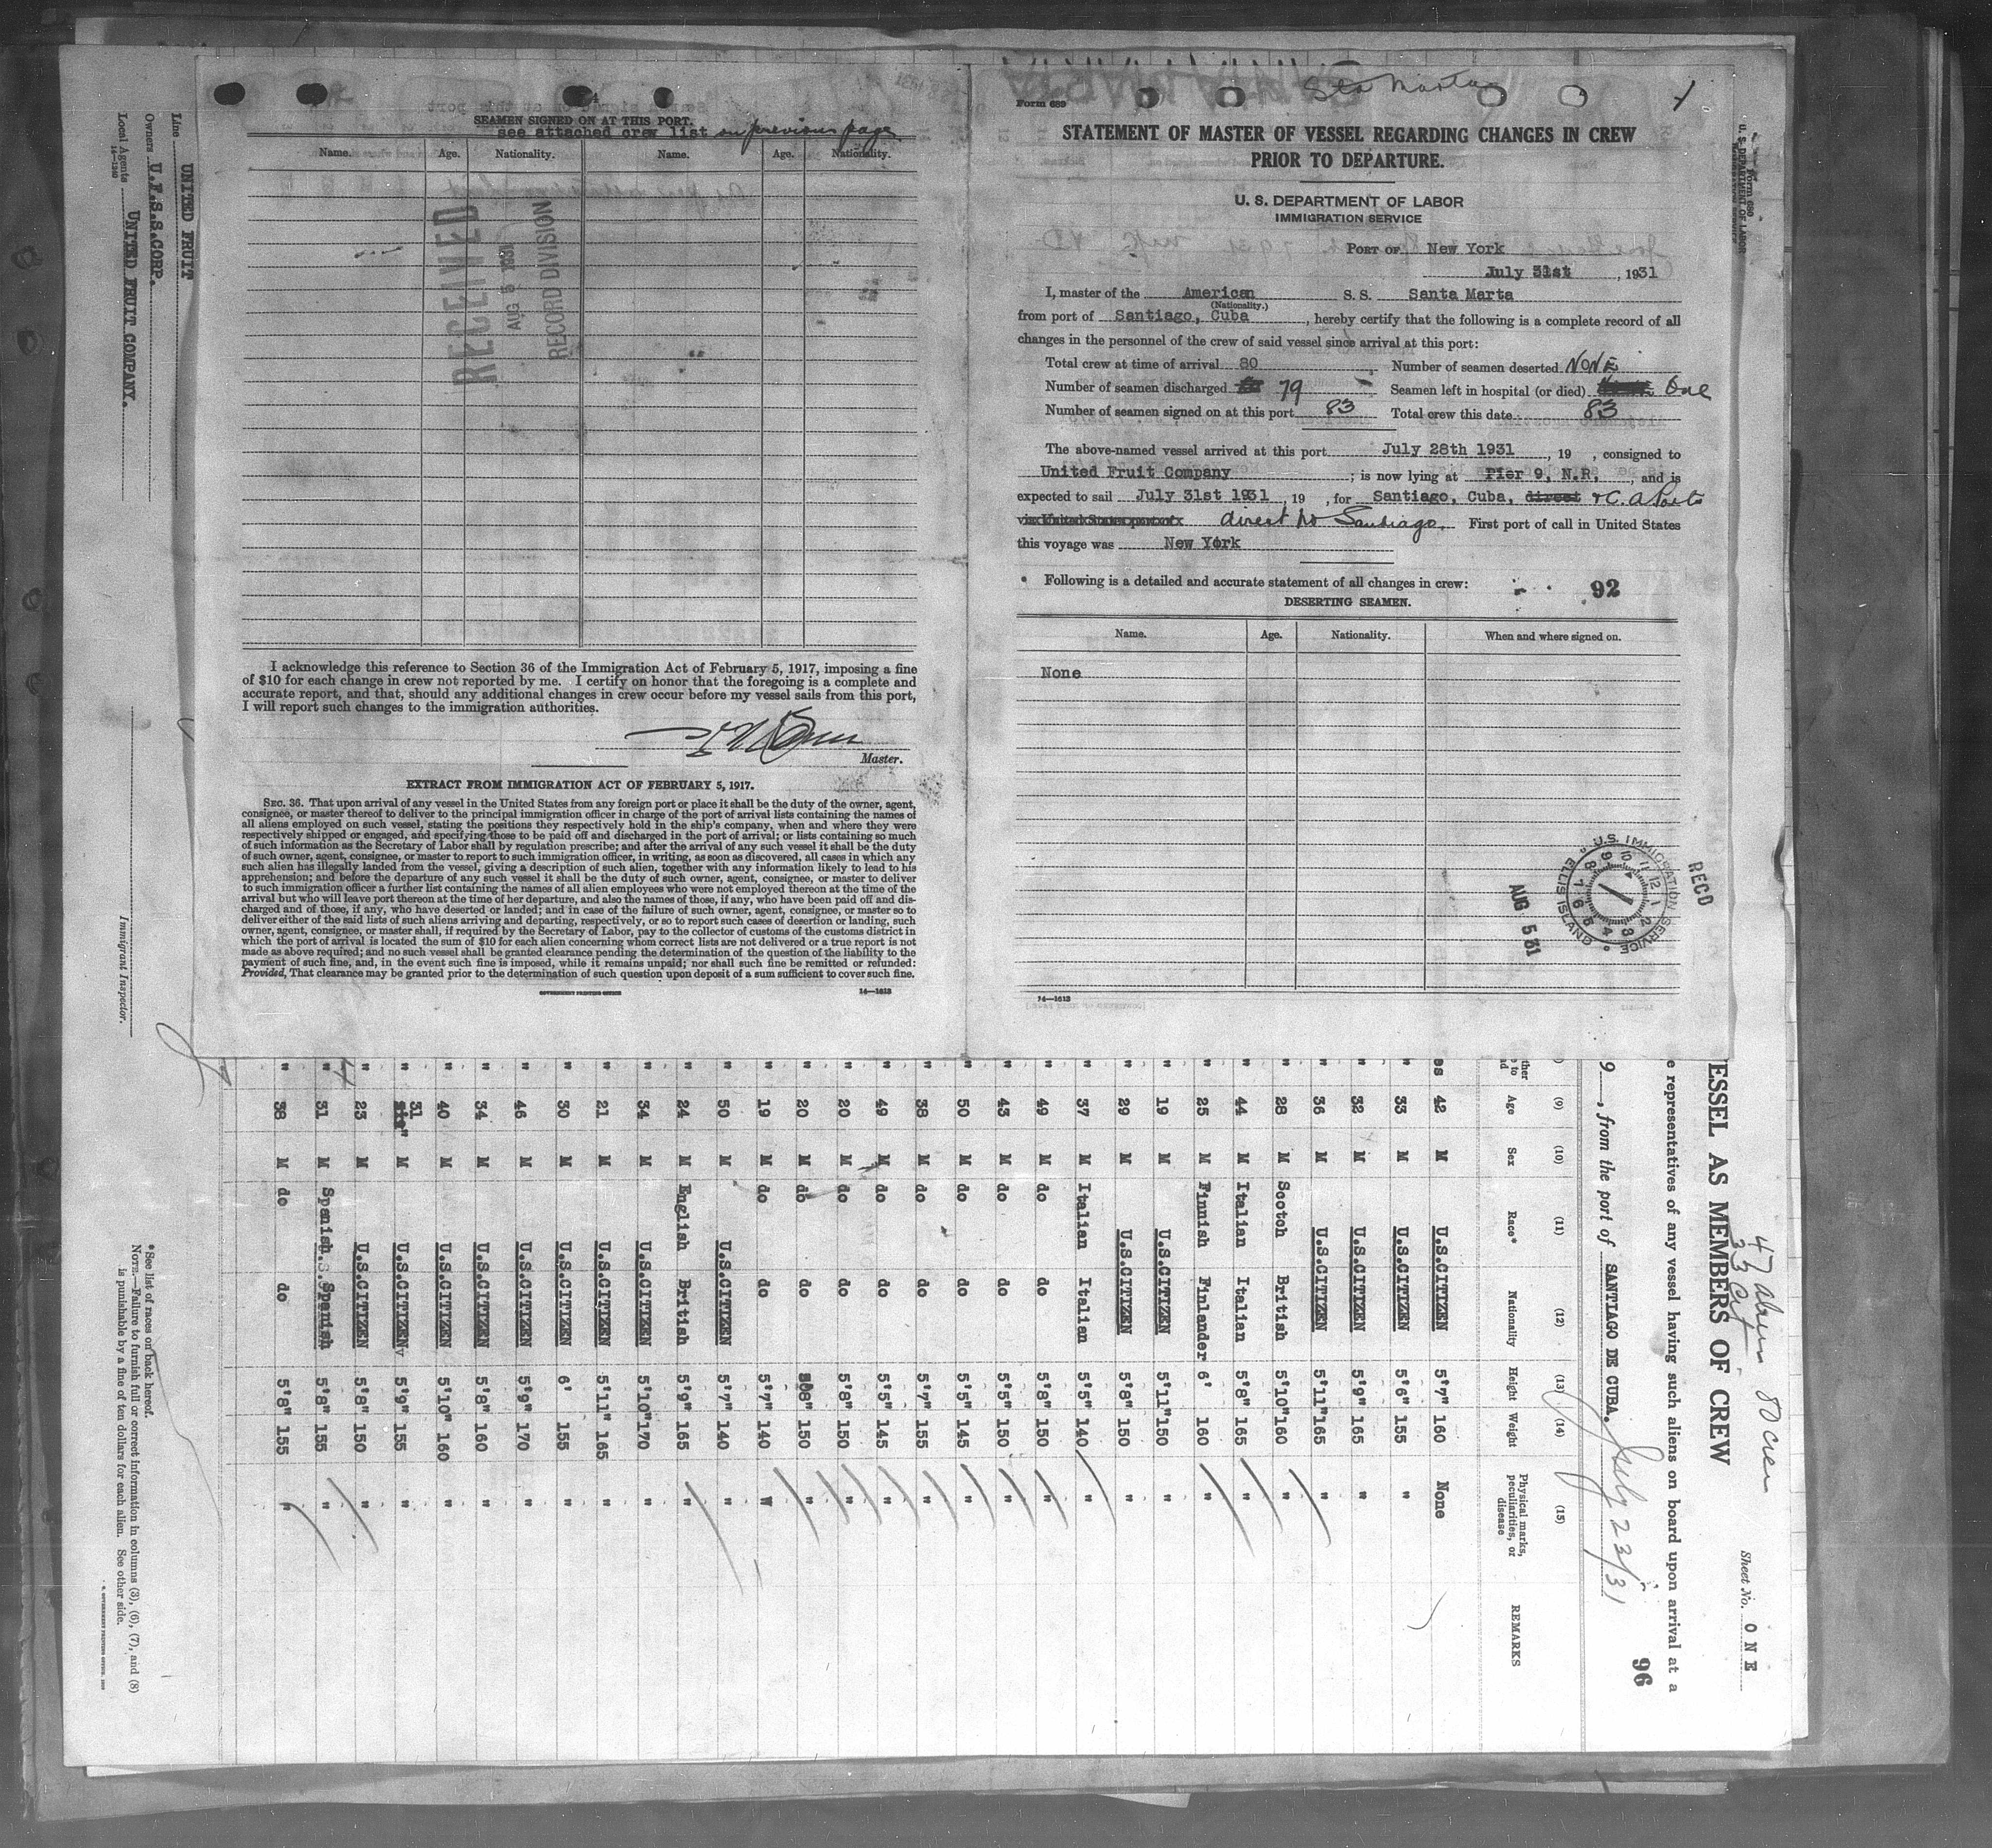 SEAMEN SIGNED ON AT THIS PORT.
see attached crew list on previous page
Name. Age. Nationality. Name. Age. Nationality.
RECEIVED
AUG 5 1931
RECORD DIVISION
I acknowledge this reference to Section 36 of the Immigration Act of February 5, 1917, imposing a fine
of $10 for each change in crew not reported by me. I certify on honor that the foregoing is a complete and
accurate report, and that, should any additional changes in crew occur before my vessel sails from this port,
I will report such changes to the immigration authorities.
Master.
EXTRACT FROM IMMIGRATION ACT OF FEBRUARY 5, 1917.
SEC. 36. That upon arrival of any vessel in the United States from any foreign port or place it shall be the duty of the owner, agent,
consignee, or master thereof to deliver to the principal immigration officer in charge of the port of arrival lists containing the names of
all aliens employed on such vessel, stating the positions they respectively hold in the ship's company, when and where they were
respectively shipped or engaged, and specifying those to be paid off and discharged in the port of arrival; or lists containing so much
of such information as the Secretary of Labor shall by regulation prescribe; and after the arrival of any such vessel it shall be the duty
of such owner, agent, consignee, or master to report to such immigration officer, in writing, as soon as discovered, all cases in which any
such alien has illegally landed from the vessel, giving a description of such alien, together with any information likely to lead to his
apprehension; and before the departure of any such vessel it shall be the duty of such owner, agent, consignee, or master to deliver
to such immigration officer a further list containing the names of all alien employees who were not employed thereon at the time of the
arrival but who will leave port thereon at the time of her departure, and also the names of those, if any, who have been paid off and dis-
charged and of those, if any, who have deserted or landed; and in case of the failure of such owner, agent, consignee, or master so to
deliver either of the said lists of such aliens arriving and departing, respectively, or so to report such cases of desertion or landing, such
owner, agent, consignee, or master shall, if required by the Secretary of Labor, pay to the collector of customs of the customs district in
which the port of arrival is located the sum of $10 for each alien concerning whom correct lists are not delivered or a true report is not
made as above required; and no such vessel shall be granted clearance pending the determination of the question of the liability to the
payment of such fine, and, in the event such fine is imposed, while it remains unpaid; nor shall such fine be remitted or refunded:
Provided, That clearance may be granted prior to the determination of such question upon deposit of a sum sufficient to cover such fine.
GOVERNMENT PRINTING OFFICE 14—1613
Form 689
Sta Marta
STATEMENT OF MASTER OF VESSEL REGARDING CHANGES IN CREW
PRIOR TO DEPARTURE.
U. S. DEPARTMENT OF LABOR
IMMIGRATION SERVICE
PORT OF New York
July 31st, 1931
I, master of the American S. S. Santa Marta
(Nationality.)
from port of Santiago, Cuba, hereby certify that the following is a complete record of all
changes in the personnel of the crew of said vessel since arrival at this port:
Total crew at time of arrival 80 Number of seamen deserted NONE
Number of seamen discharged 79 Seamen left in hospital (or died) One
Number of seamen signed on at this port 83 Total crew this date 83
The above-named vessel arrived at this port July 28th 1931, 19 , consigned to
United Fruit Company ; is now lying at Pier 9, N.R., and is
expected to sail July 31st 1931, 19 , for Santiago, Cuba, direct & C. A Ports
direct to Santiago. First port of call in United States
this voyage was New York
Following is a detailed and accurate statement of all changes in crew:
92
DESERTING SEAMEN.
Name. Age. Nationality. When and where signed on.
None
14—1613
U.S. IMMIGRATION SERVICE
ELLIS ISLAND
REC'D
AUG 5 31
Form 689
U. S. DEPARTMENT OF LABOR
Line UNITED FRUIT
Owners U.F.S.S.CORP.
Local Agents UNITED FRUIT COMPANY.
14—1240
Immigrant Inspector.
*See list of races on back hereof.
NOTE.—Failure to furnish full or correct information in columns (3), (6), (7), and (8)
is punishable by a fine of ten dollars for each alien. See other side.
Sheet No. ONE
47 aliens 80 crew
33 Cit
ESSEL AS MEMBERS OF CREW
e representatives of any vessel having such aliens on board upon arrival at a
9 , from the port of SANTIAGO DE CUBA. July 23/31
96
(9) (10) (11) (12) (13) (14) (15)
Age Sex Race* Nationality Height Weight Physical marks, peculiarities, or disease REMARKS
es 42 M U.S.CITIZEN 5'7" 160 None
" 33 M U.S.CITIZEN 5'6" 155 "
" 32 M U.S.CITIZEN 5'9" 165 "
" 36 M U.S.CITIZEN 5'11" 165 "
" 28 M Scotch British 5'10" 160
" 44 M Italian Italian 5'8" 165 "
" 25 M Finnish Finlander 6' 160 "
" 19 M U.S.CITIZEN 5'11" 150 "
" 29 M U.S.CITIZEN 5'8" 150 "
" 37 M Italian Italian 5'5" 140 "
" 49 M do do 5'8" 150 "
" 43 M do do 5'5" 150 "
" 50 M do do 5'5" 145 "
" 38 M do do 5'7" 155 "
" 49 M do do 5'5" 145 "
" 20 M do do 5'8" 150 "
" 20 M do do 5'8" 150 "
" 19 M do do 5'7" 140 "
" 50 M U.S.CITIZEN 5'7" 140 "
" 24 M English British 5'9" 165 "
" 34 M U.S.CITIZEN 5'10" 170 "
" 21 M U.S.CITIZEN 5'11" 165 "
" 30 M U.S.CITIZEN 6' 155 "
" 46 M U.S.CITIZEN 5'9" 170 "
" 34 M U.S.CITIZEN 5'8" 160 "
" 40 M U.S.CITIZEN 5'10" 160 "
" 31 M U.S.CITIZEN 5'9" 155 "
" 23 M U.S.CITIZEN 5'8" 150 "
" 31 M Spanish Spanish 5'8" 155 "
" 38 M do do 5'8" 155 "